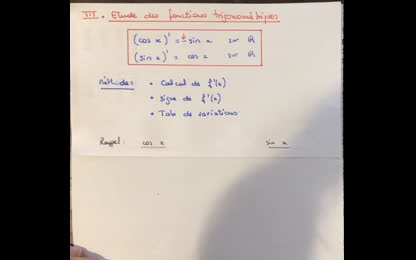 III. Etude des fonctions trigonométriques
(cos x)' = - sin x sur ℝ
(sin x)' = cos x sur ℝ
Méthode:
• Calcul de f'(x)
• Signe de f'(x)
• Tabl de variations
Rappel: cos x sin x